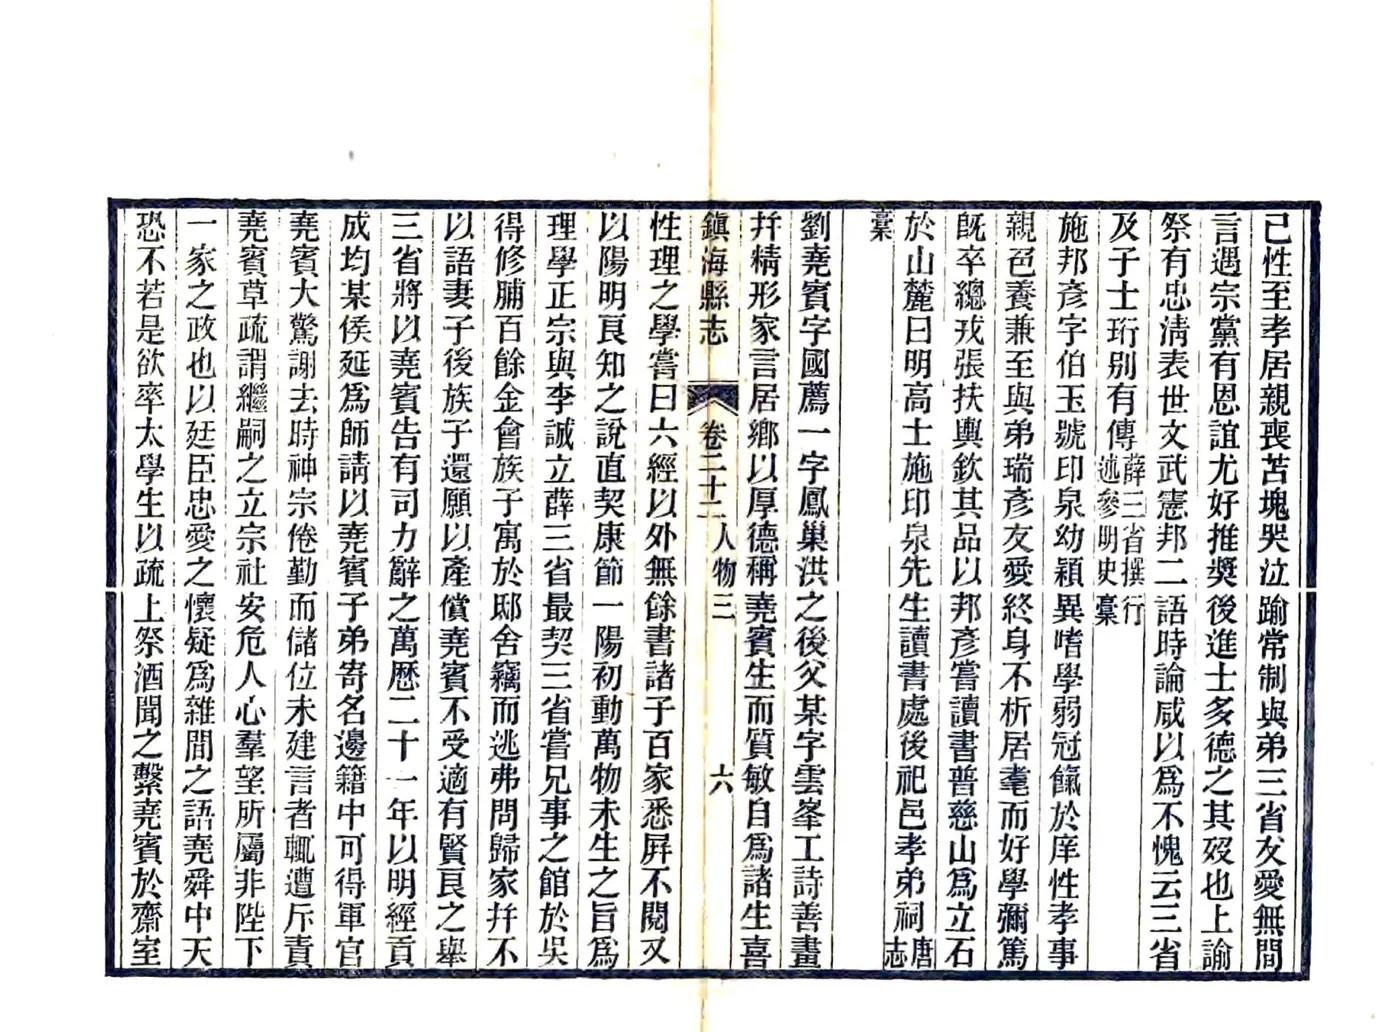 己性至孝居親喪苫塊哭泣踰常制與弟三省友愛無間
言遇宗黨有恩誼尤好推奬後進士多德之其歿也上諭
祭有忠淸表世文武憲邦二語時論咸以爲不愧云三省
及子士珩别有傳薛三省撰行述參明史藁
施邦彥字伯玉號印泉幼穎異嗜學弱冠餼於庠性孝事
親色養兼至與弟瑞彥友愛終身不析居耄而好學彌篤
旣卒總戎張扶輿欽其品以邦彥嘗讀書普慈山爲立石
於山麓曰明高士施印泉先生讀書處後祀邑孝弟祠唐志
藁
劉堯賓字國薦一字鳳巢洪之後父某字雲峯工詩善畫
幷精形家言居鄉以厚德稱堯賓生而質敏自爲諸生喜
鎭海縣志
卷二十二人物三
六
性理之學嘗曰六經以外無餘書諸子百家悉屛不閱又
以陽明良知之說直契康節一陽初動萬物未生之旨爲
理學正宗與李誠立薛三省最契三省嘗兄事之館於吳
得修脯百餘金會族子寓於邸舍竊而逃弗問歸家幷不
以語妻子後族子還願以產償堯賓不受適有賢良之舉
三省將以堯賓告有司力辭之萬歷二十一年以明經貢
成均某侯延爲師請以堯賓子弟寄名邊籍中可得軍官
堯賓大驚謝去時神宗倦勤而儲位未建言者輒遭斥責
堯賓草疏謂繼嗣之立宗社安危人心羣望所屬非陛下
一家之政也以廷臣忠愛之懷疑爲雜間之語堯舜中天
恐不若是欲率太學生以疏上祭酒聞之繫堯賓於齋室